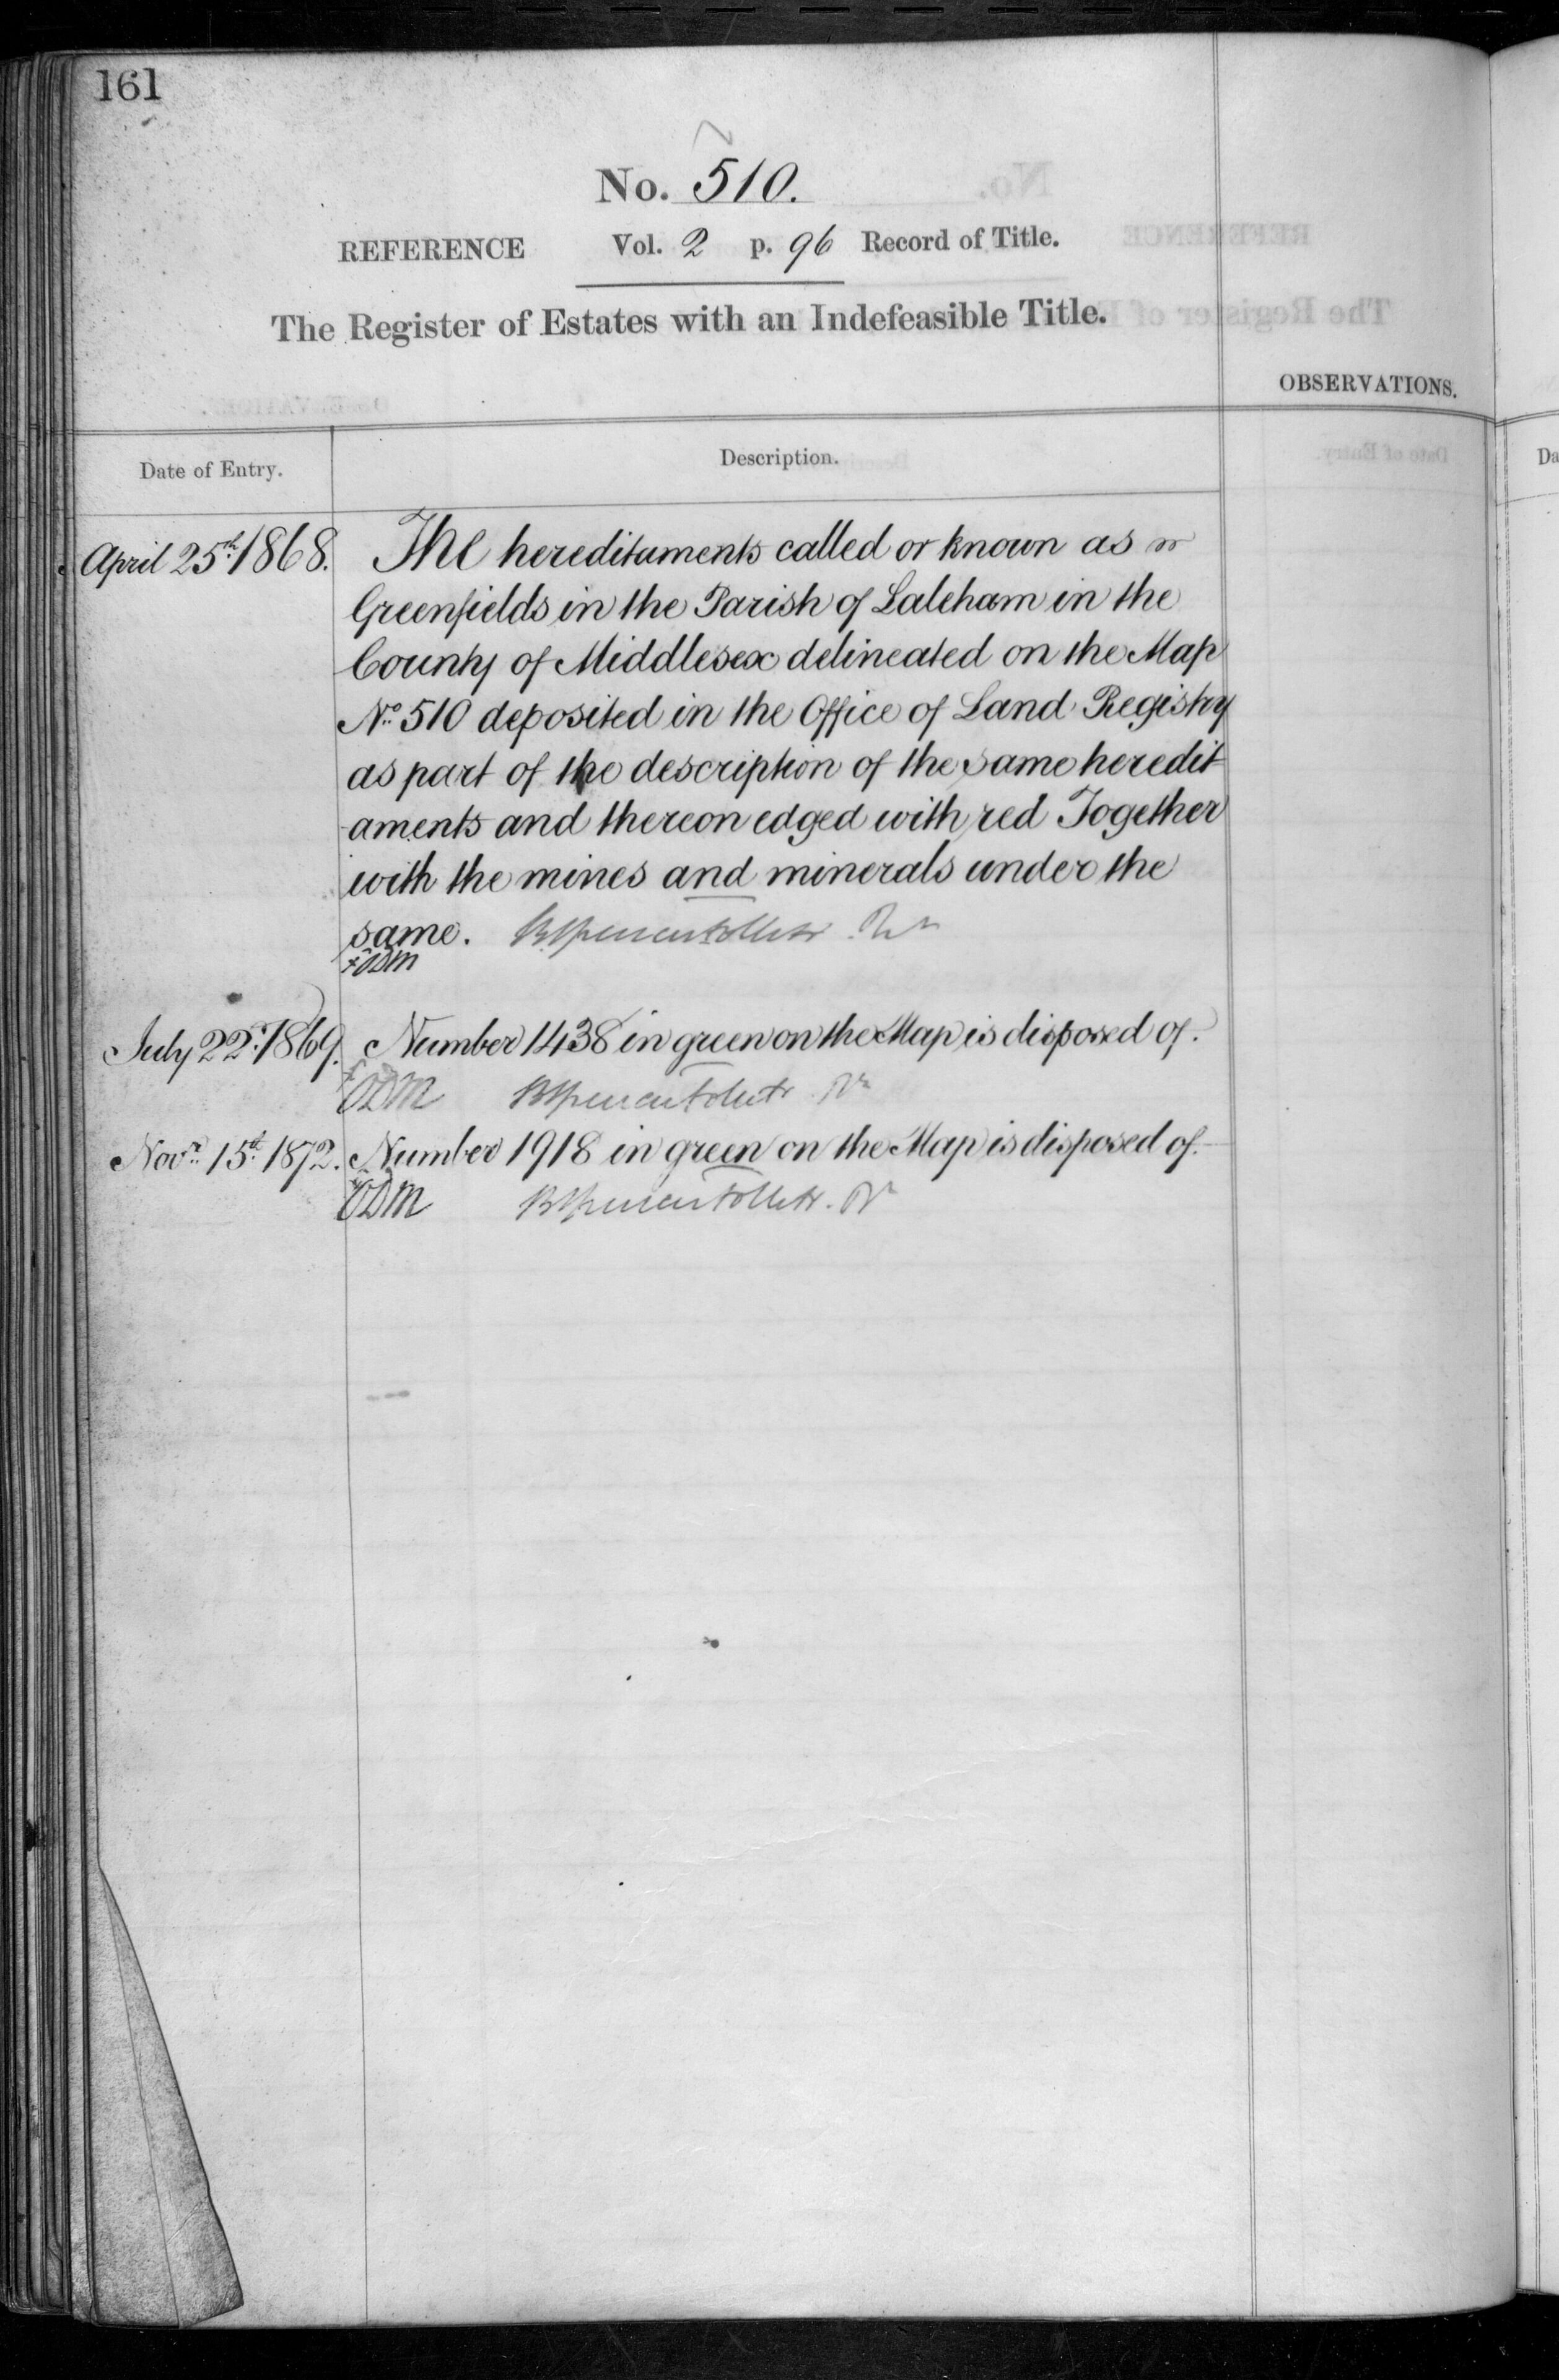 161
No. 510.
REFERENCE Vol. 2 p. 96 Record of Title.
The Register of Estates with an Indefeasible Title.
OBSERVATIONS.
Date of Entry. Description.
April 25th. 1868. The hereditaments called or known as
Greenfields in the Parish of Laleham in the
County of Middlesex delineated on the Map
No. 510 deposited in the Office of Land Registry
as part of the description of the same heredit
aments and thereon edged with red Together
with the mines and minerals under the
same.
ODM
July 22d. 1869. Number 1438 in green on the Map is disposed of.
ODM
Novr. 15th. 1872. Number 1918 in green on the Map is disposed of.
ODM